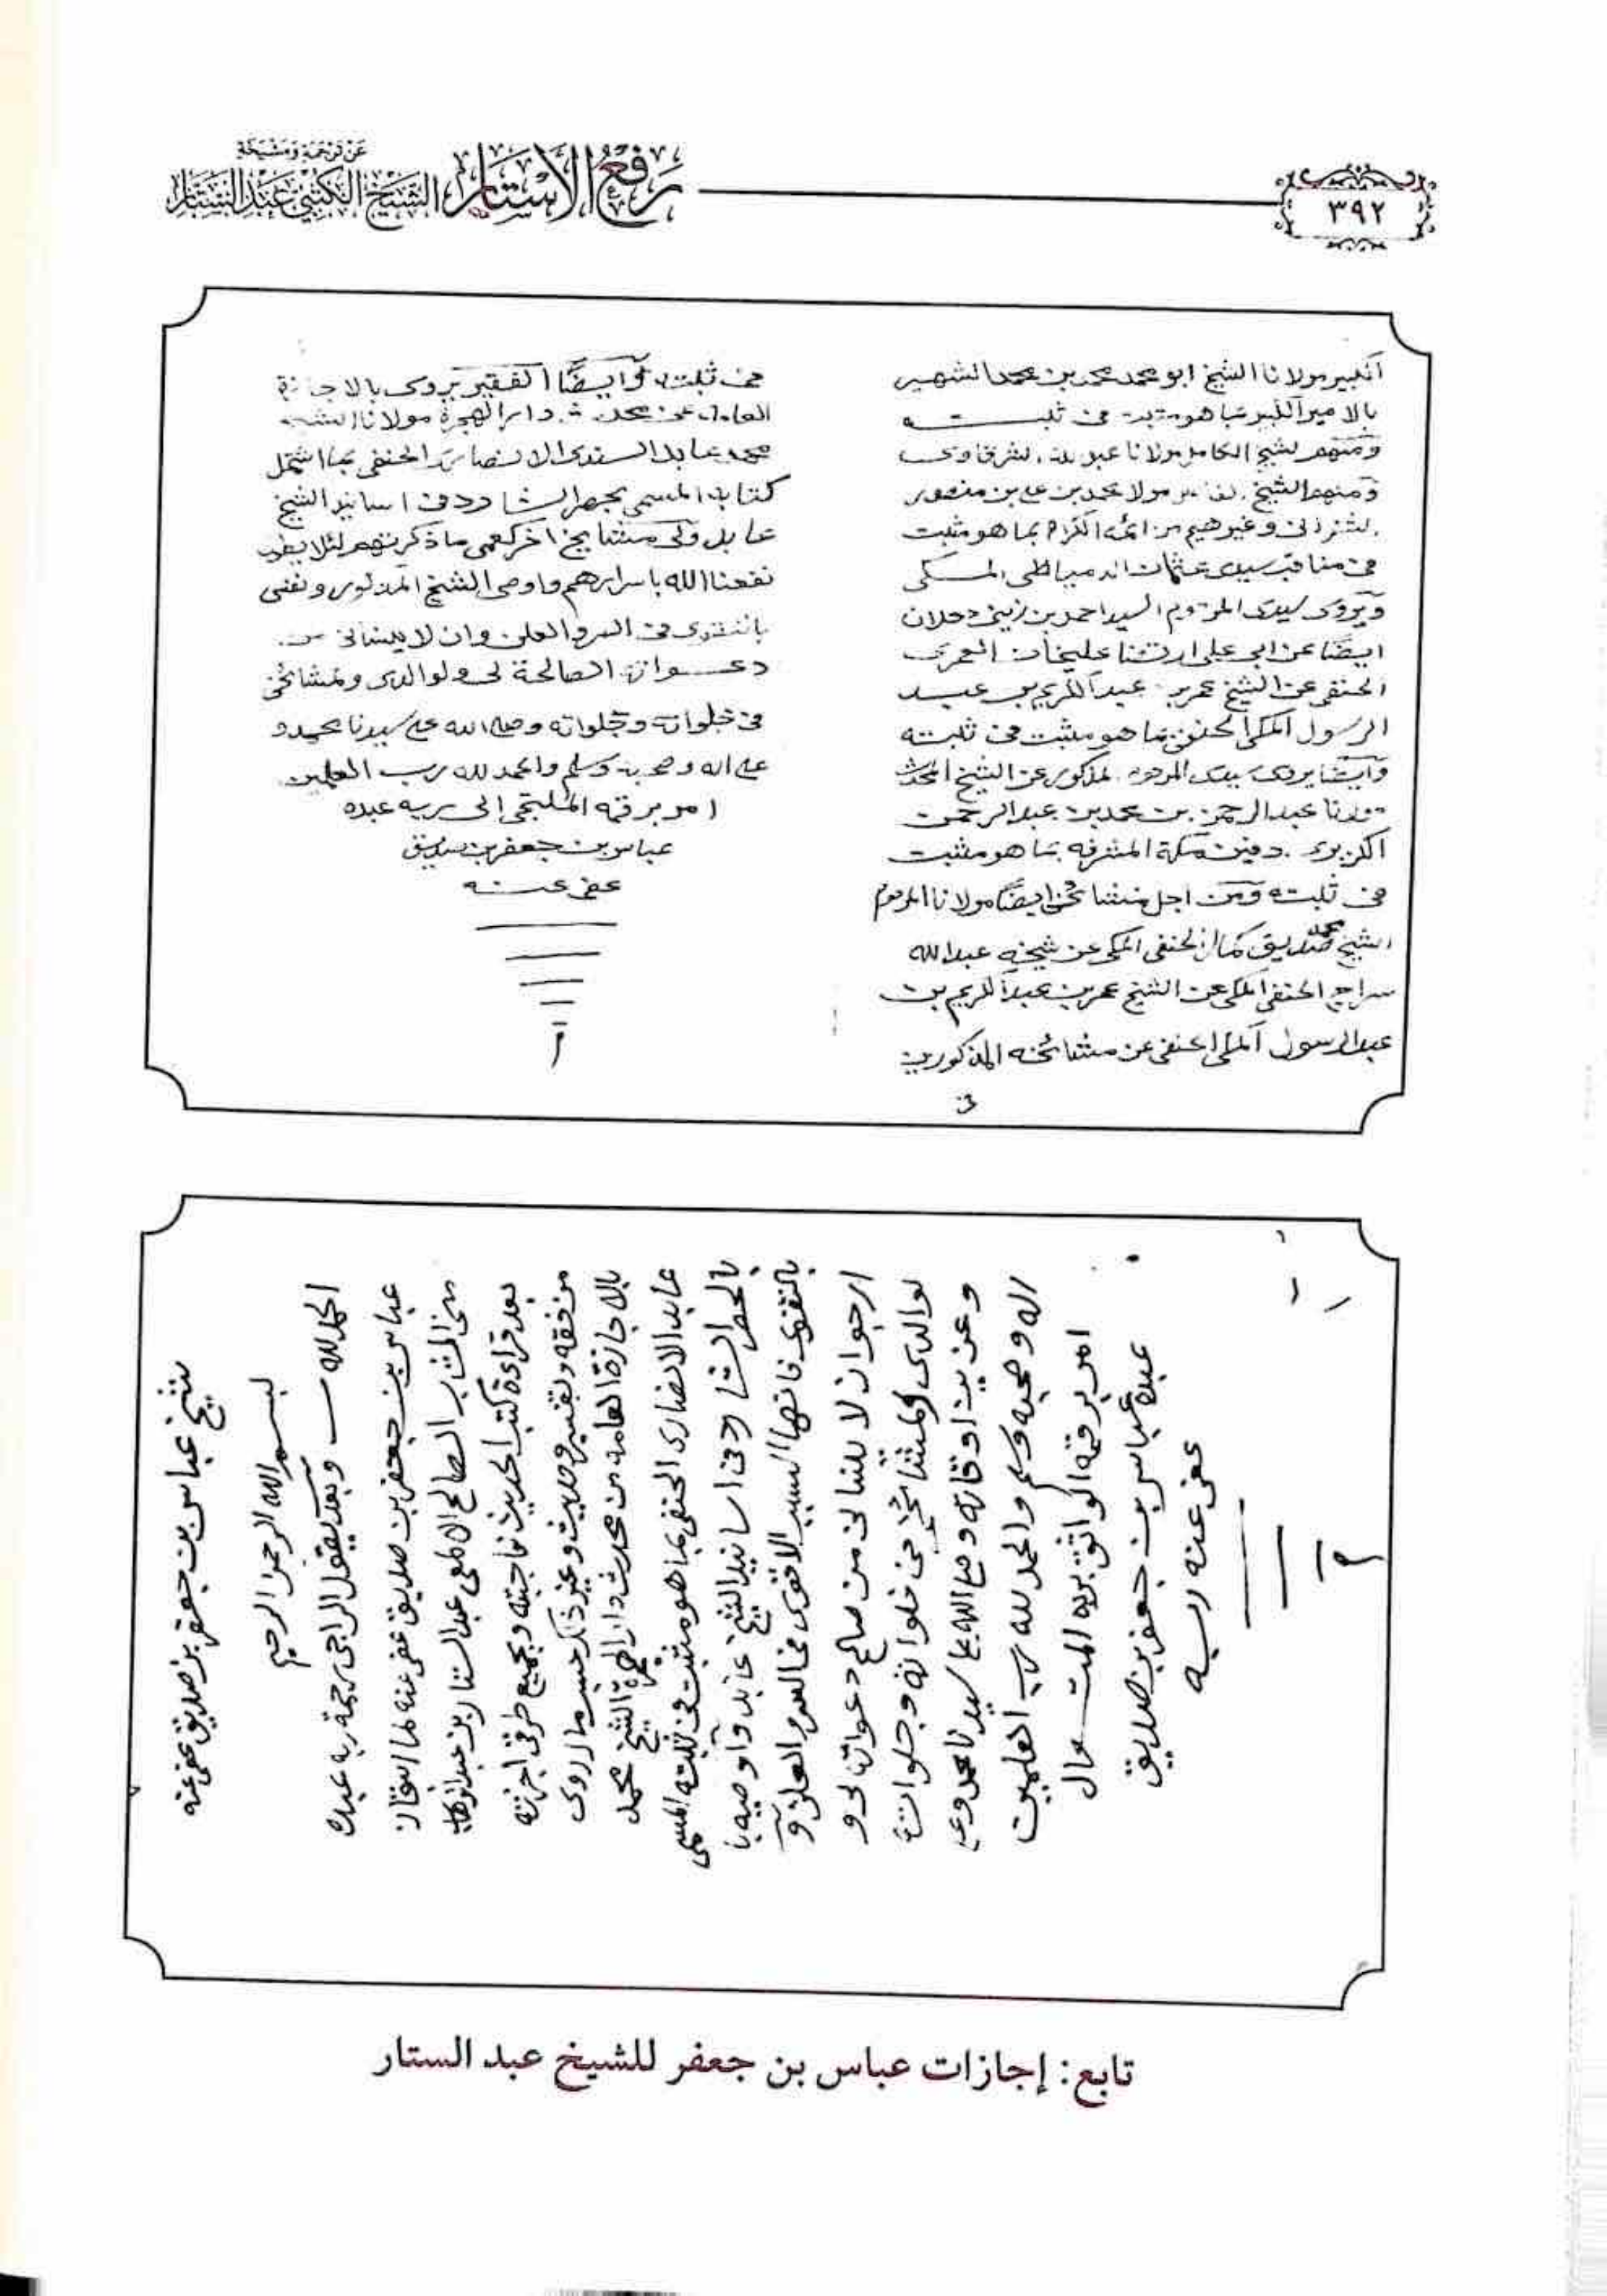 ٣٩٢
رفع الأستار
عن ترجمة ومشيخة
الشيخ الكتبي عبد الستار
الكبير مولانا الشيخ ابو محمد محمد بن محمد الشهير
بالامير الكبير بما هو مثبت في ثبته
ومنهم الشيخ الكامل مولانا عبد الله الشرقاوي
ومنهم الشيخ مولانا محمد بن علي بن منصور
الشنواني وغيرهم من ائمة الكرام بما هو مثبت
في مناقب سيدي عثمان الدمياطي المكي
ويروي سيدي المرحوم السيد احمد بن زيني دحلان
ايضًا عن ابي علي ارتضا عليخان العمري
الحنفي عن الشيخ عمر بن عبد الكريم بن عبد
الرسول المكي الحنفي بما هو مثبت في ثبته
وايضا يروي سيدي المرحوم المذكور عن الشيخ المحدث
مولانا عبد الرحمن بن محمد بن عبد الرحمن
الكزبري دفين مكة المشرفه بما هو مثبت
في ثبته ومن اجل مشائخي ايضًا مولانا المرحوم
الشيخ محمد صديق كمال الحنفي المكي عن شيخه عبد الله
سراج الحنفي المكي عن الشيخ عمر بن عبد الكريم بن
عبد الرسول المكي الحنفي عن مشائخه المذكورين
في
في ثبته وايضًا الفقير يروي بالاجازة
العامة عن محدث دار الهجرة مولانا الشيخ
محمد عابد السندي الانصاري الحنفي بما اشتمل
كتابه المسمى بحصر الشارد في اسانيد الشيخ
عابد ولي مشايخ اخر غير ما ذكرتهم لئلا يطول
نفعنا الله باسرارهم واوصي الشيخ المذكور ونفسي
بالتقوى في السر والعلن وان لا ينساني من
دعواته الصالحة لي ولوالدي ولمشائخي
في خلواته وجلواته وصلى الله على سيدنا محمد و
على اله وصحبه وسلم والحمد لله رب العلمين
امر برقمه الملتجي الى ربه عبده
عباس بن جعفر بن صديق
عفي عنه
شيخ عباس بن جعفر بن صديق عفي عنه
بسم الله الرحمن الرحيم
الحمد لله وبعد يقول الراجي رحمة ربه عبده
عباس بن جعفر بن صديق عفي عنه لما استجاز
مني الشاب الصالح الالمعي عبد الستار بن عبد الوهاب
بعد قراءة كتب الحديث فاجبته وبجميع طرقي اجزته
من فقه وتفسير وحديث وغير ذلك حسبما اروي
بالاجازة العامه من محدث دار الهجرة الشيخ محمد
عابد الانصاري الحنفي بما هو مثبت في ثبته المسمى
بالحصر الشارد في اسانيد الشيخ عابد واوصيه
بالتقوى فانها السبب الاقوى في السر والعلن و
ارجو ان لا ينساني من صالح دعواته لي و
لوالدي ولمشائخي في خلواته وجلواته
وعزيز اوقاته وصلى الله على سيدنا محمد وعلى
اله وصحبه وسلم والحمد لله رب العلمين
امر برقمه الواثق بربه المتعال
عبده عباس بن جعفر بن صديق
عفي عنه ربه
تابع: إجازات عباس بن جعفر للشيخ عبد الستار